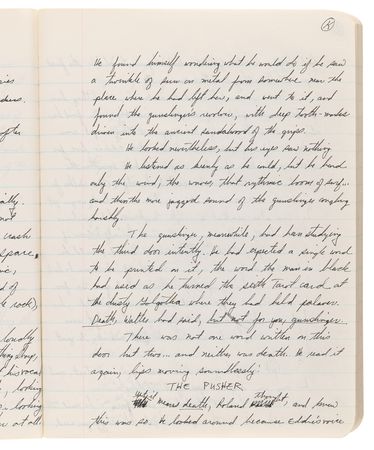 He found himself wondering what he would do if he saw
a twinkle of sun on metal from somewhere near the
place where he had left her, and went to it, and
found the gunslinger's revolver, with deep tooth-marks
driven into the ancient sandalwood of the grips.
He looked nevertheless, but his eyes saw nothing
He listened as keenly as he could, but he heard
only the wind, the waves, that rythmic boom of surf...
and the more jagged sound of the gunslinger coughing
harshly.
The gunslinger, meanwhile, had been studying
the third door intently. He had expected a single word
to be printed on it, the word the man in black
had used as he turned the sixth tarot card at
the dusty Golgotha where they had held palaver.
Death, Walter had said, but not for you, gunslinger.
There was not one word written on this
door but two... and neither was death. He read it
again, lips moving soundlessly:
THE PUSHER
means death, Roland thought, and knew
this was so. He looked around because Eddie's voice
ally.
not
crash
space,
d of
k rock),
loudly
his vocal
looking
looking
or at all.